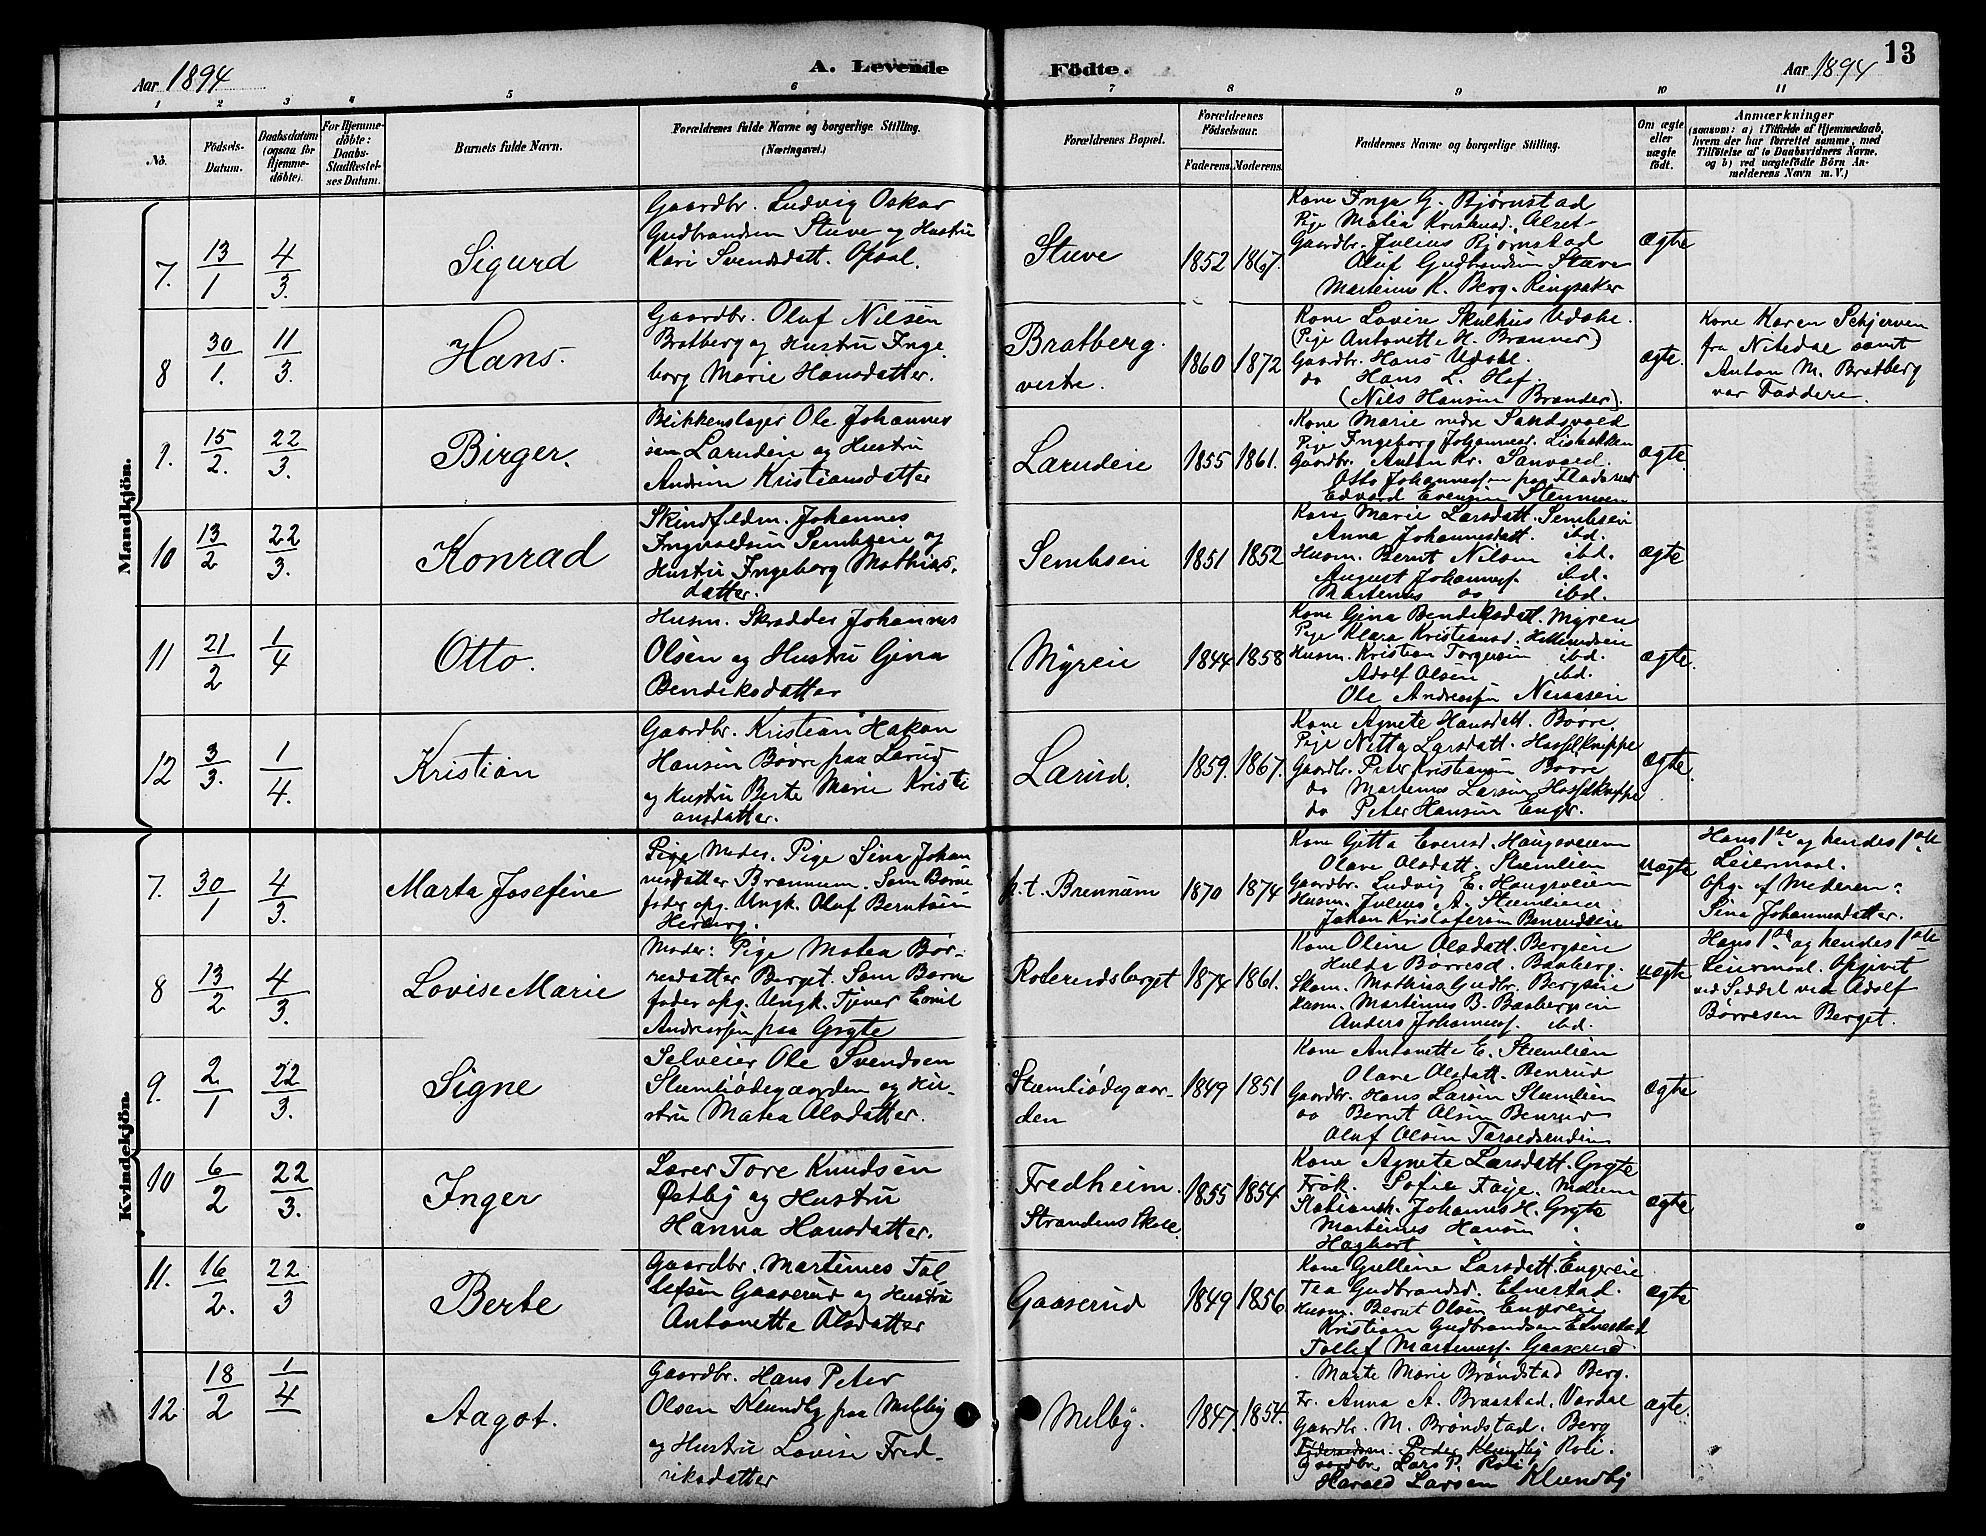 Aar 1894
A. Levende
Födte.
Aar 1894
13
1 2 3 4 5 6 7 8 9 10 11
No.
Födsels-
Datum.
Daabsdatum
(ogsaa for
Hjemme-
döbte).
For Hjemme-
döbte:
Daabs-
Stadfæstel-
ses Datum.
Barnets fulde Navn.
Forældrenes fulde Navne og borgerlige Stilling.
(Næringsvei.)
Forældrenes Bopæl.
Forældrenes
Födselsaar.
Faderens. Moderens.
Faddernes Navne og borgerlige Stilling.
Om ægte
eller
uægte
födt.
Anmærkninger
(saasom: a) i Tilfælde af Hjemmedaab,
hvem der har forrettet samme, med
Tilföielse af to Daabsvidners Navne,
og b) ved uægtefödte Börn An-
melderens Navn m. V.)
Mandkjön.
7. 13/1 4/3. Sigurd
Gaardbr. Ludvig Oskar
Gudbrandsen Stuve og Hustru
Kari Svendsdatt. Opsal.
Stuve 1852 1867.
Kone Inga G. Bjørnstad
Pige Matea
Gaardbr. Julius Bjørnstad
Oluf Gudbrandsen Stuve
Martinius K. Berg. Ringsaker
ægte
8 30/1. 11/3. Hans.
Gaardbr. Oluf Nilsen
Bratberg og Hustru Inge-
borg Marie Hansdatter.
Bratberg.
vestre.
1860 1872
Kone Lovise Skulhus Udahl.
(Pige Antonette H. Brænner)
Gaardbr. Hans Udahl.
do Hans L. Hof.
(Nils Hansen Brænder).
ægte.
Kone Karen Schjerven
fra Nitedal samt
Anton M. Bratberg
var Faddere.
9. 15/2. 22/3. Birger.
Blikkenslager Ole Johannes
sen Larudeie og Hustru
Andrine Kristiansdatter
Larudeie 1855 1861.
Kone Marie nedre Sandsvold
Pige Ingeborg Johannesd. Lisbakken
Gaardbr. Anton Kr. Sanvold.
Otto Johannessen paa
Edvard Evensen
ægte.
10 13/2 22/3. Konrad
Skindfeldm. Johannes
Ingvoldsen Sembseie og
Hustru Ingeborg Mathias-
datter.
Sembseie 1851 1852
Kone Marie Larsdatt. Sembseie
Anna Johannesdatt. ibd.
Husm. Bernt Nilsen ibd.
August Johanness. ibd.
Martinus do ibd.
ægte
11 21/2 1/4 Otto.
Husm. Skrædder Johannes
Olsen og Hustru Gina
Bendiksdatter
Myreie 1844 1858
Kone Gina Bendiksdatt. Myren
Pige Klara Kristiansd.
Husm. Kristian Torgersen ibd.
Adolf Olsen ibd.
Ole Andreassen Neraaseie
ægte.
12 3/3. 1/4. Kristian
Gaardbr. Kristian Hakon
Hansen Børre paa Larud
og Hustru Berte Marie Kristi
ansdatter.
Larud. 1859. 1867.
Kone Agnete Hansdatt. Børre
Pige Nitta Larsdatt. Hasselknippe
Gaardbr. Peter Kristiansen Børre
do Martinus Larsen Hasselknippe
do Peter Hansen Enger.
ægte.
Kvindekjön.
7. 30/1 4/3. Marta Josefine
Pige Moder. Pige Sina Johan
nesdatter Brennum. Som Barne
fader opg. Ungk. Oluf Berntsen
Herberg.
p.t. Brennum 1870 1874
Kone Gitta Eversd. Haugsveien
Olave Olsdatt. Stemlien
Gaardbr. Ludvig E. Haugsveien
Husm. Julius A. Stemlien
Johan Kristofersen Benrudseie
uægte
Hans 1ste og hendes 1ste
Leiermaal.
Opg. af Moderen:
Sina Johannesdatter.
8 13/2 4/3. Lovise Marie
Moder: Pige Matea Bør-
resdatter Berget. Som Barne
fader opg. Ungk. Tjener Emil
Andreassen paa Gryte
1874 1861.
Kone Oline Olsdatt. Bergseie
Hulda Børresd. Baaberg.
Skom. Mathias Gudbr. Bergseie
Husm. Martinus B. Baabergseie
Anders Johanness. ibd.
uægte
Hans 1ste og hendes 1ste
Leiermaal. Opgivet
ved Seddel ved Adolf
Børresen Berget.
9. 2/1 22/3. Signe
Selveier Ole Svendsen
Stemliødegaarden og Hu-
stru Matea Olsdatter.
Stemliødegaar-
den
1849 1851
Kone Antonette E. Stemlien
Olave Olsdatt. Benrud
Gaardbr. Hans Larsen Stemlien
do Bernt Olsen Benrud
Oluf Olsen
ægte
10 6/2 22/3. Inger
Lærer Tore Knudsen
Østby og Hustru
Hanna Hansdatter.
Fredheim.
Strandens Skole.
1855 1854
Kone Agnete Larsdatt. Gryte
Frøk. Sofie Faye.
Stationsh. Johannes H. Gryte
Martinus Hansen
Hagbart
ægte
11. 16/2. 22/3 Berte
Gaardbr. Martinus Tol
lefsen Gaaserud og Hustru
Antonette Olsdatter
Gaaserud 1849 1856
Kone Gulline Larsdatt. Engereie
Tea Gudbrandsd. Elnestad.
Husm. Bernt Olsen Engereie
Kristian Gudbrandsen Elnestad
Tollef Martinuss. Gaaserud.
ægte
12 18/2 1/4 Aagot.
Gaardbr. Hans Peter
Olsen Klundby paa Melby
og Hustru Lovise Fred-
riksdatter
Melby. 1847. 1854.
Marte Marie Brøndstad Berg.
Fr. Anna A. Braastad. Vardal
Gaardbr. M. Brøndstad. Berg
Peder Klundby Roli.
Gaardbr. Lars P. Roli
Harald Larsen Klundby
ægte.